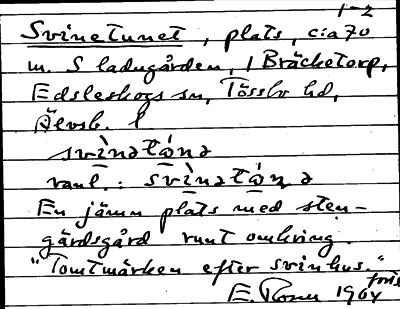 1-2
Svinetunet, plats, c:a 70
m. S ladugården, 1 Bräcketorp,
Edsleskogs sn, Tössbo hd,
Älvsb. l
svìnətó̤nə
vanl.: svìnətó̤nə
En jämn plats med sten-
gärdsgård runt omkring.
"Tomtmärken efter svinhus."
E. 1964